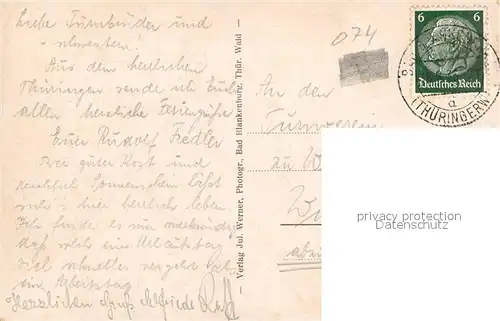 Liebe Turnbrüder und
schwestern!
Aus dem herrlichen
Thüringen sende ich Euch
allen herzliche Feriengrüße
Euer Rudolf Fiedler
Bei guter Kost und
Sonnenschein läßt
sich's hier herrlich leben.
Ich finde es nur merkwürdig
daß solch ein Urlaubstag
viel schneller vergeht als
ein Arbeitstag
Herzlichen Gruß Elfriede
Verlag Jul. Werner, Photogr., Bad Blankenburg, Thür. Wald
074
6 6
Deutsches Reich
a
(THÜRINGERW
An den
Turnverein
zu
privacy protection
Datenschutz